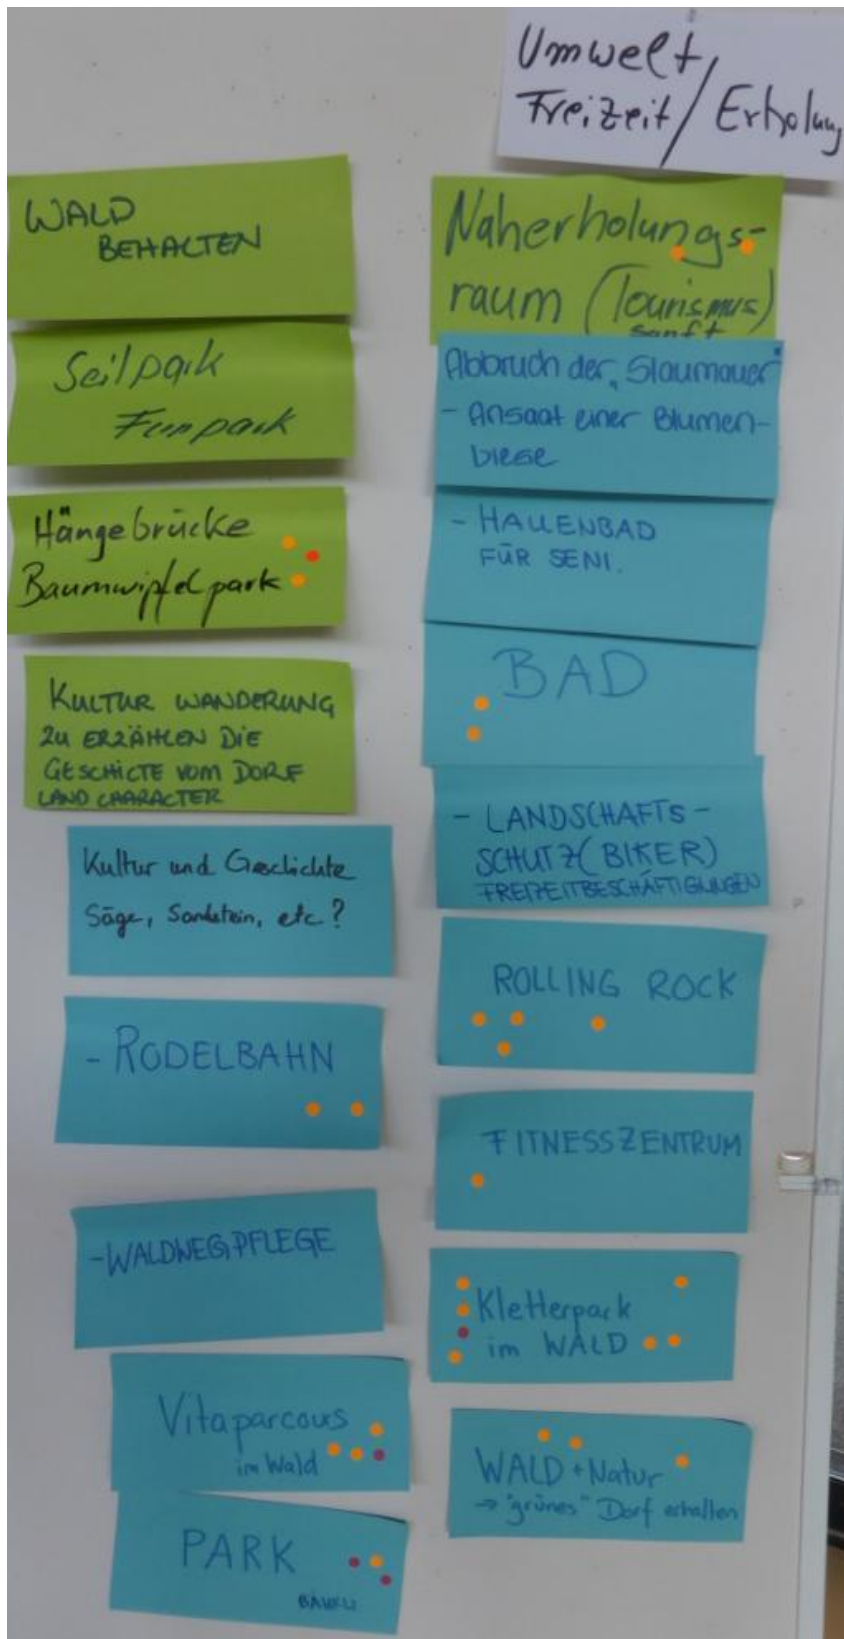 Umwelt,
Freizeit/Erholung
WALD
BEHALTEN
Seilpark
Funpark
Hängebrücke
Baumwipfelpark
KULTUR WANDERUNG
ZU ERZÄHLEN DIE
GESCHICTE VOM DORF
LAND CHARACTER
Kultur und Geschichte
Säge, Sandstein, etc?
- RODELBAHN
-WALDWEGPFLEGE
Vitaparcours
im Wald
PARK
Naherholungs-
raum (Tourismus)
sanft
Abbruch der „Staumauer"
- Ansaat einer Blumen-
wiese
- HALLENBAD
FÜR SENI.
BAD
- LANDSCHAFTS-
SCHUTZ (BIKER)
FREIZEITBESCHÄFTIGUNGEN
ROLLING ROCK
FITNESSZENTRUM
Kletterpark
im WALD
WALD + Natur
→ "grünes" Dorf erhalten